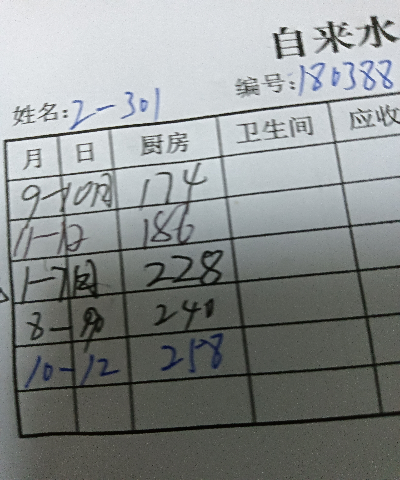 自来水
编号:180388
姓名:2-301
月 日 厨房 卫生间 应收
9-10月 174
11-12 186
1-7月 228
8-9 240
10-12 258